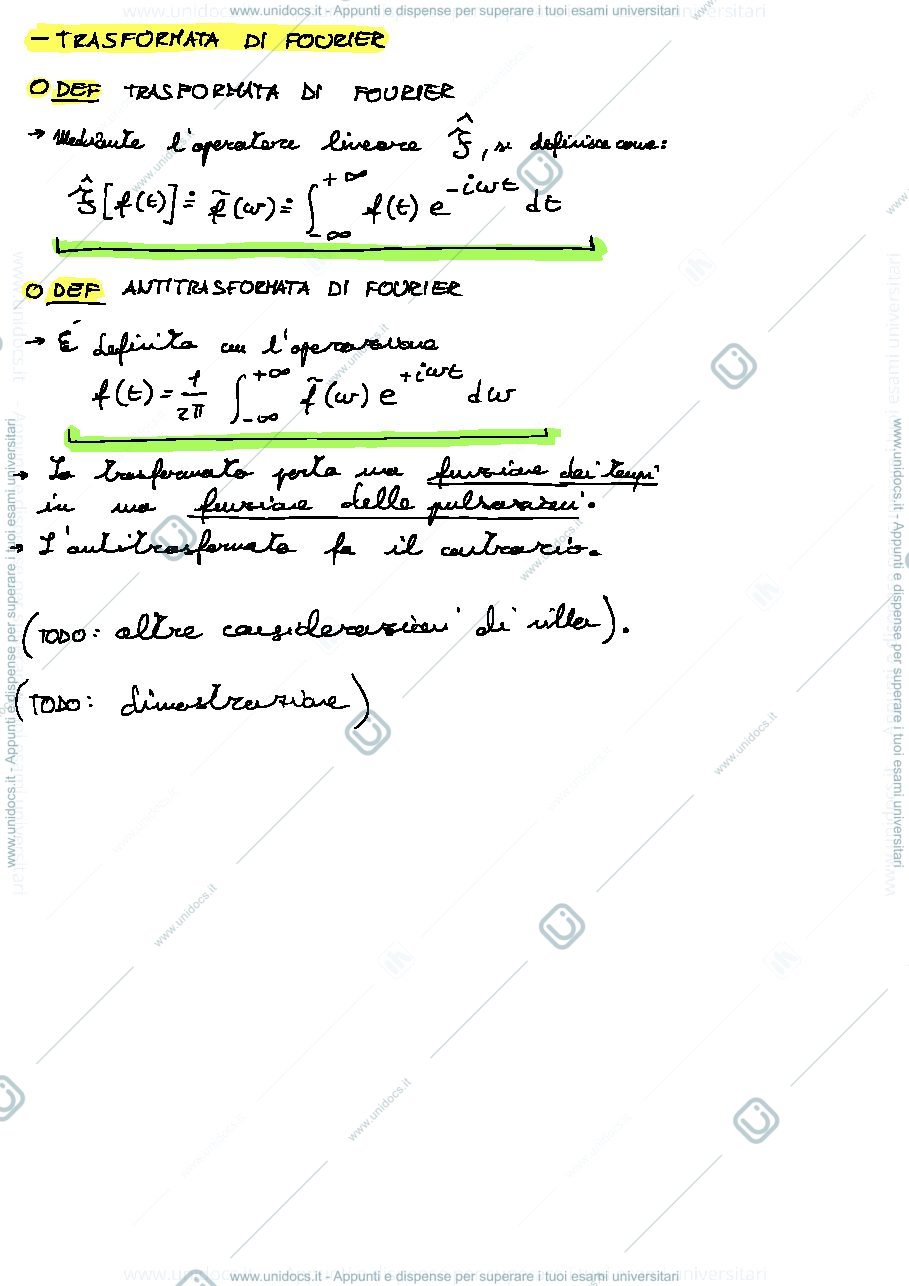 www.unidocs.it - Appunti e dispense per superare i tuoi esami universitari
- TRASFORMATA DI FOURIER
DEF TRASFORMATA DI FOURIER
→ Mediante l'operatore lineare 𝔉̂, si definisce come:
𝔉̂[f(t)] ≐ f̃(ω) ≐ ∫_{-∞}^{+∞} f(t) e^{-iωt} dt
DEF ANTITRASFORMATA DI FOURIER
→ É definita con l'operazione
f(t) = 1/2π ∫_{-∞}^{+∞} f̃(ω) e^{+iωt} dω
→ La trasformata porta una funzione dei tempi
in una funzione delle pulsazioni.
→ L'antitrasformata fa il contrario.
(TODO: altre considerazioni di villa).
(TODO: dimostrazione)
www.unidocs.it - Appunti e dispense per superare i tuoi esami universitari
www.unidocs.it - Appunti e dispense per superare i tuoi esami universitari
www.unidocs.it - Appunti e dispense per superare i tuoi esami universitari
www.unidocs.it
www.unidocs.it
www.unidocs.it
www.unidocs.it
www.unidocs.it